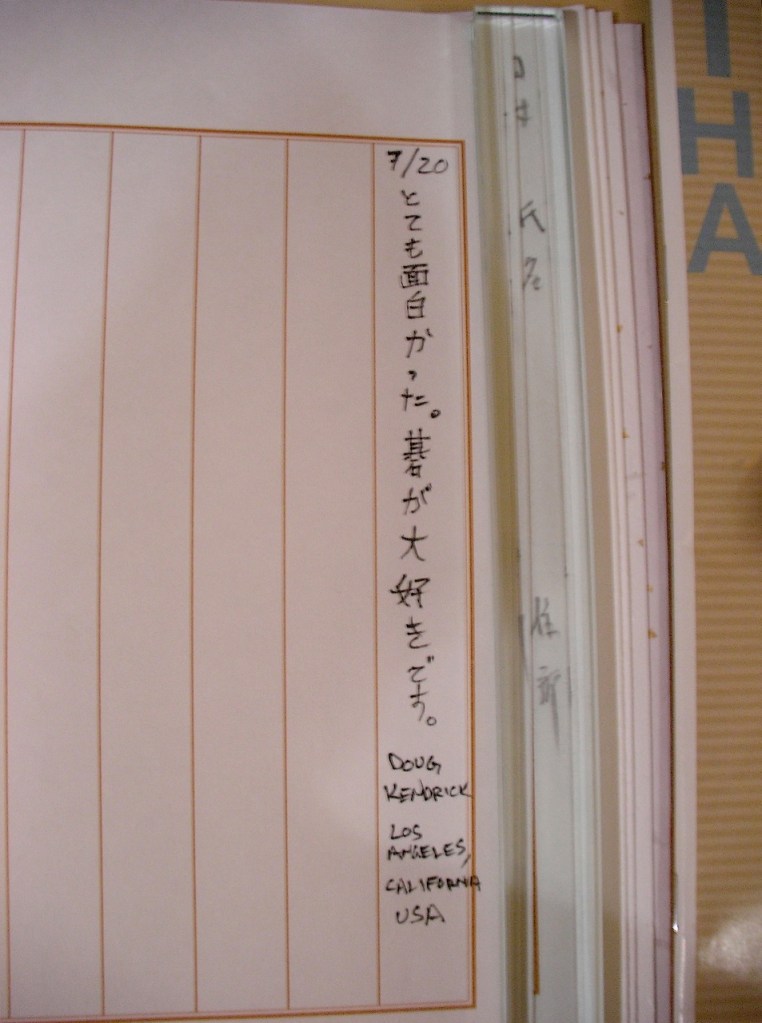 7/20
とても面白かった。碁が大好きです。
DOUG
KENDRICK
LOS
ANGELES,
CALIFORNIA
USA
氏名
住所
HA